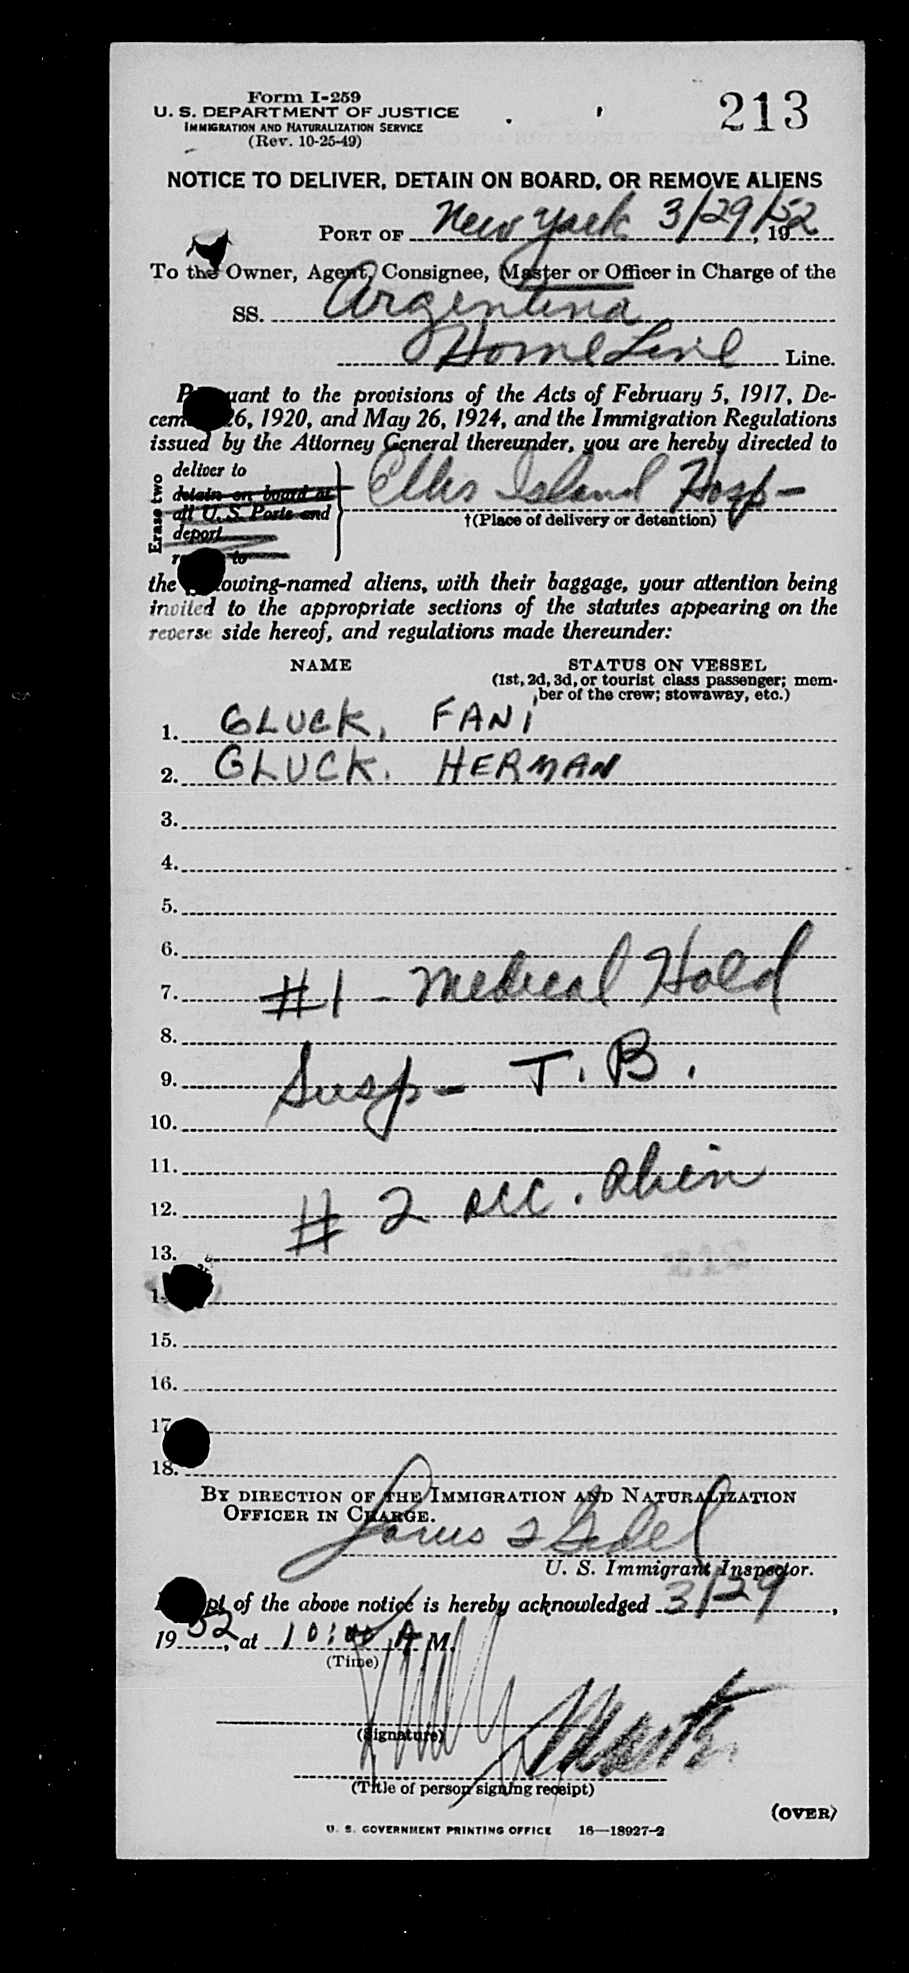 Form I-259
U. S. DEPARTMENT OF JUSTICE
IMMIGRATION AND NATURALIZATION SERVICE
(Rev. 10-25-49)
213
NOTICE TO DELIVER, DETAIN ON BOARD, OR REMOVE ALIENS
PORT OF New York 3/29/52, 19
To the Owner, Agent, Consignee, Master or Officer in Charge of the
SS. Argentina
Home Line Line.
Pursuant to the provisions of the Acts of February 5, 1917, De-
cember 26, 1920, and May 26, 1924, and the Immigration Regulations
issued by the Attorney General thereunder, you are hereby directed to
Erase two
deliver to
detain on board at
all U. S. Ports and
deport
to
Ellis Island Hosp-
†(Place of delivery or detention)
the following-named aliens, with their baggage, your attention being
invited to the appropriate sections of the statutes appearing on the
reverse side hereof, and regulations made thereunder:
NAME
STATUS ON VESSEL
(1st, 2d, 3d, or tourist class passenger; mem-
ber of the crew; stowaway, etc.)
1. GLUCK, FANI
2. GLUCK, HERMAN
3.
4.
5.
6.
7. #1 - Medical Hold
8.
9. Susp- T. B.
10.
11.
12. #2 acc. alien
13.
15.
16.
17
18.
BY DIRECTION OF THE IMMIGRATION AND NATURALIZATION
OFFICER IN CHARGE.
U. S. Immigrant Inspector.
Receipt of the above notice is hereby acknowledged 3/29,
19 52, at 10:00 A M.
(Time)
(Signature)
Master
(Title of person signing receipt)
(OVER)
U. S. GOVERNMENT PRINTING OFFICE 16—18927-2